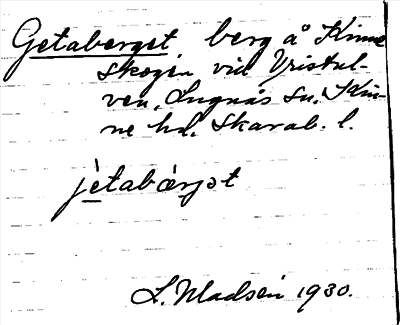 Getaberget, berg å Kinne
skogen vid Vristul-
ven, Lugnås sn, Kin-
ne hd, Skarab. l.
jètabærjət
L. Madsén 1930.